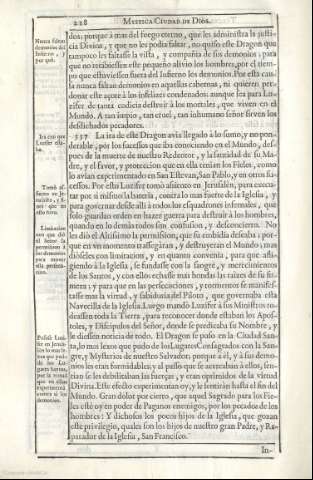 228 MYSTICA CIUDAD DE DIOS.
Nunca faltan demonios del Infierno, y por què.
dos; porque à mas del fuego eterno, que les administra la justi-
cia Divina, y que no les podia faltar, no quiso este Dragon que
tampoco les faltasse la vista, y compañia de sus demonios; para
que no recibiessen este pequeño alivio los hombres, por el tiem-
po que estuviessen fuera del Infierno los demonios. Por esta cau-
sa nunca faltan demonios en aquellas cabernas, ni quieren per-
donar este açote à los infelizes condenados: aunque sea para Lu-
zifer de tanta codicia destruir à los mortales, que viven en el
Mundo. A tan impio, tan cruel, tan inhumano señor sirven los
desdichados pecadores.
537 La ira de este Dragon avia llegado à lo sumo, y no pon-
derable, por los sucessos que iba conociendo en el Mundo, des-
pues de la muerte de nuestro Redentor, y la santidad de su Ma-
dre, y el favor, y proteccion que en ella tenian los Fieles, como
lo avian experimentado en San Estevan, San Pablo, y en otros su-
cessos. Por esto Luzifer tomò assiento en Jerusalèn, para execu-
tar por si mismo la bateria, contra lo mas fuerte de la Iglesia, y
para governar desde alli à todos los esquadrones infernales, que
solo guardan orden en hazer guerra para destruir à los hombres,
quando en lo demàs todos son confusion, y desconcierto. No
les diò el Altissimo la permission, que su embidia deseaba; por-
que en un momento trassegàran, y destruyeran el Mundo; mas
diòseles con limitacion, y en quanto convenia, para que afli-
giendo à la Iglesia, se fundasse con la sangre, y merecimientos
de los Santos, y con ellos echasse mas hondas las raizes de su fir-
meza; y para que en las persecuciones, y tormentos se manifes-
tasse mas la virtud, y sabiduria del Piloto, que governaba esta
Navecilla de la Iglesia. Luego mandò Luzifer à sus Ministros ro-
deassen toda la Tierra, para reconocer donde estaban los Apos-
toles, y Discipulos del Señor, donde se predicaba su Nombre, y
le diessen noticia de todo. El Dragon se puso en la Ciudad San-
ta, lo mas lexos que pudo de los Lugares Consagrados con la San-
gre, y Mysterios de nuestro Salvador; porque à èl, y à sus demo-
nios les eran formidables, y al passo que se acercaban à ellos, sen-
tian se les debilitaban las fuerças, y eran oprimidos de la virtud
Divina. Este efecto experimentan oy, y le sentiràn hasta el fin del
Mundo. Gran dolor por cierto, que aquel Sagrado para los Fie-
les estè oy en poder de Paganos enemigos, por los pecados de los
hombres: Y dichosos los pocos hijos de la Iglesia, que gozan
este privilegio, quales son los hijos de nuestro gran Padre, y Re-
parador de la Iglesia, San Francisco.
In-